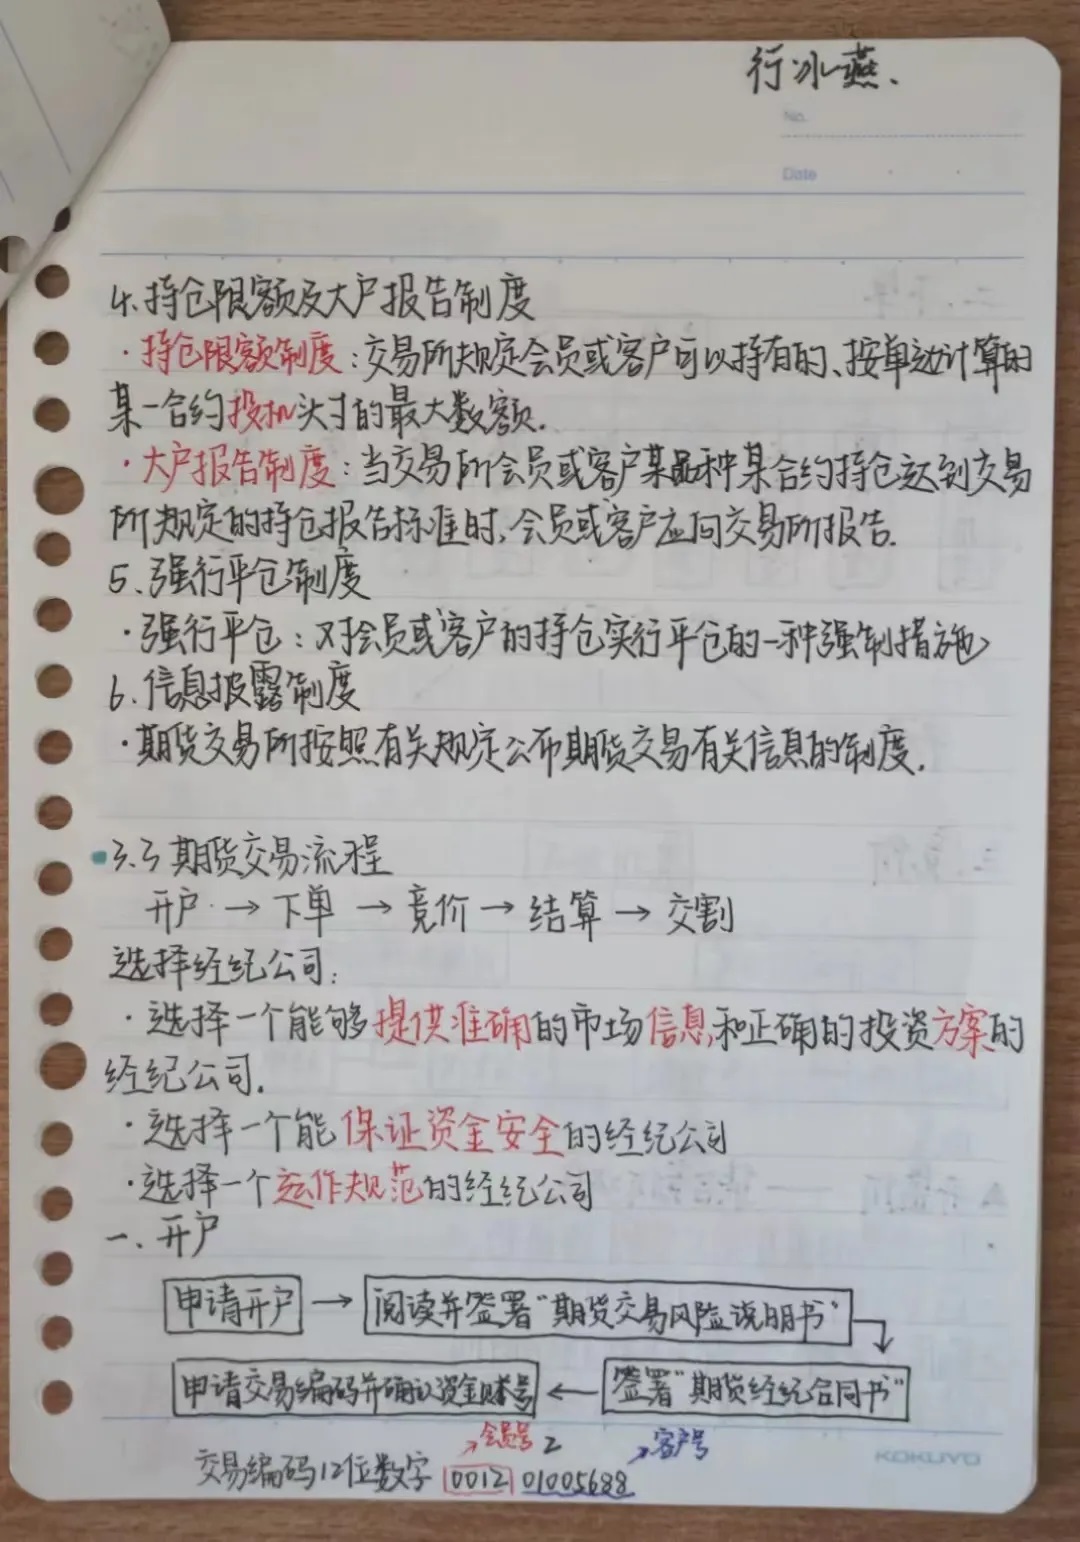 行冰燕.
No.
Date
4.持仓限额及大户报告制度
·持仓限额制度:交易所规定会员或客户可以持有的、按单边计算的
某一合约投机头寸的最大数额.
·大户报告制度:当交易所会员或客户某品种某合约持仓达到交易
所规定的持仓报告标准时,会员或客户应向交易所报告.
5.强行平仓制度
·强行平仓:对会员或客户的持仓实行平仓的一种强制措施
6.信息披露制度
·期货交易所按照有关规定公布期货交易有关信息的制度.
3.3期货交易流程
开户→下单→竞价→结算→交割
选择经纪公司:
·选择一个能够提供准确的市场信息,和正确的投资方案的
经纪公司.
·选择一个能保证资金安全的经纪公司
·选择一个运作规范的经纪公司
一、开户
申请开户→阅读并签署"期货交易风险说明书"
申请交易编码并确认资金账号←签署"期货经纪合同书"
会员号 客户号
交易编码12位数字 0012 01005688
KOKUYO